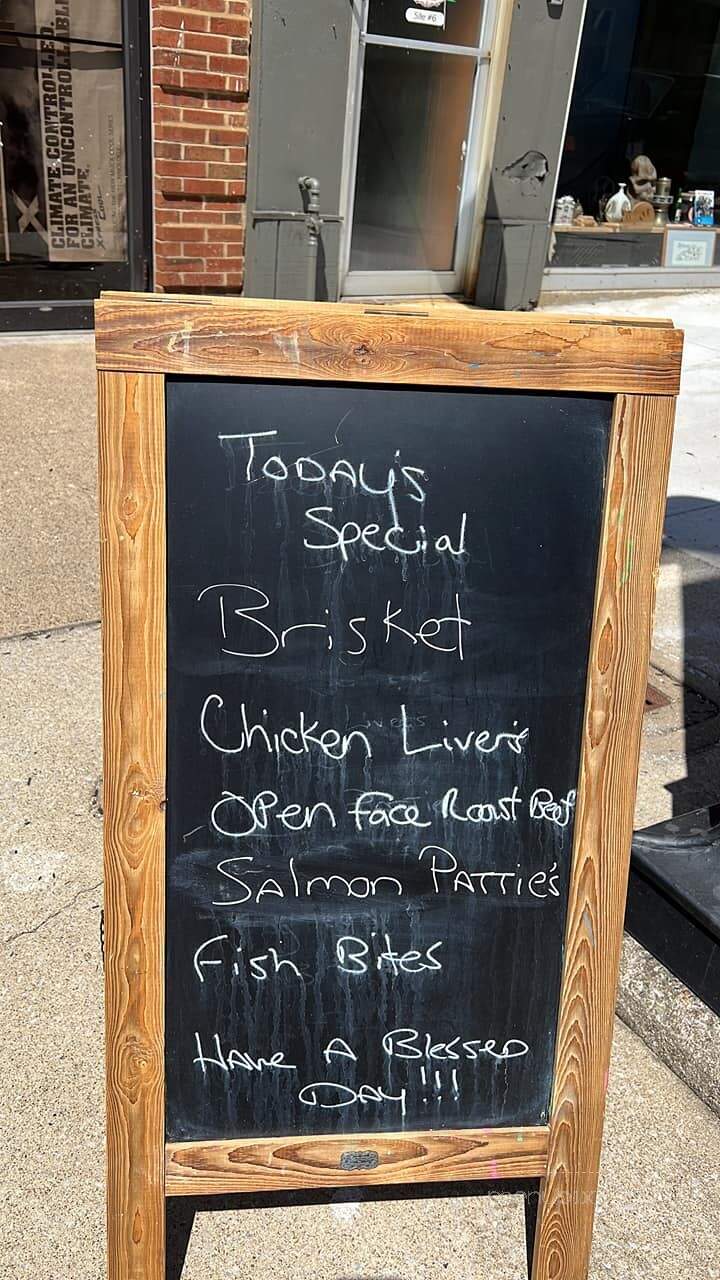 Site #6
CLIMATE CONTROLLED.
FOR AN UNCONTROLLABLE
CLIMATE.
TODAY'S
Special
Brisket
Chicken Liver's
OPen Face Roast Beef
SAlmon PATTie's
Fish Bites
HAve A Blessed
DAY!!!